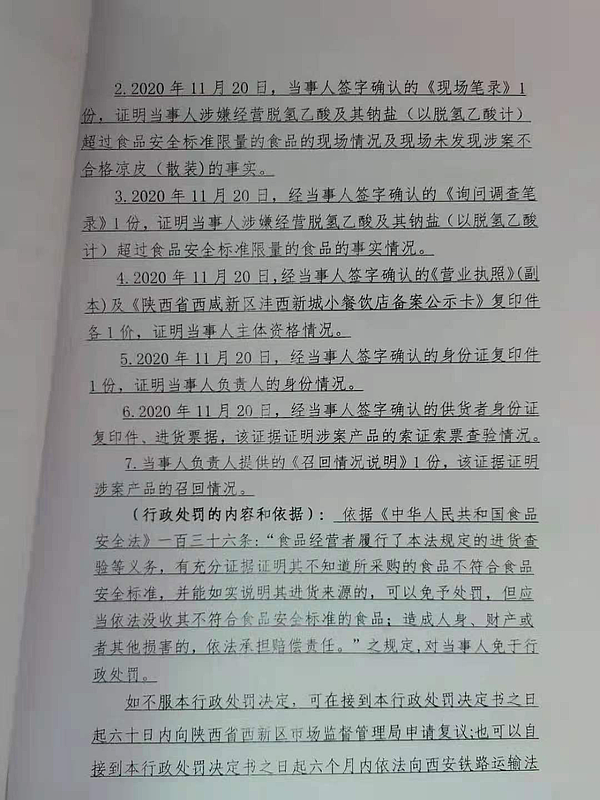 2.2020 年 11 月 20 日，当事人签字确认的《现场笔录》1
份，证明当事人涉嫌经营脱氢乙酸及其钠盐（以脱氢乙酸计）
超过食品安全标准限量的食品的现场情况及现场未发现涉案不
合格凉皮（散装)的事实。
3.2020 年 11 月 20 日，经当事人签字确认的《询问调查笔
录》1 份，证明当事人涉嫌经营脱氢乙酸及其钠盐（以脱氢乙酸
计）超过食品安全标准限量的食品的事实情况。
4.2020 年 11 月 20 日,经当事人签字确认的《营业执照》(副
本)及《陕西省西咸新区沣西新城小餐饮店备案公示卡》复印件
各 1 价，证明当事人主体资格情况。
5.2020 年 11 月 20 日，经当事人签字确认的身份证复印件
1 份，证明当事人负责人的身份情况。
6.2020 年 11 月 20 日，经当事人签字确认的供货者身份证
复印件、进货票据，该证据证明涉案产品的索证索票查验情况。
7.当事人负责人提供的《召回情况说明》1 份，该证据证明
涉案产品的召回情况。
（行政处罚的内容和依据）：依据《中华人民共和国食品
安全法》一百三十六条:“食品经营者履行了本法规定的进货查
验等义务，有充分证据证明其不知道所采购的食品不符合食品
安全标准，并能如实说明其进货来源的，可以免予处罚，但应
当依法没收其不符合食品安全标准的食品；造成人身、财产或
者其他损害的，依法承担赔偿责任。”之规定,对当事人免于行
政处罚。
如不服本行政处罚决定，可在接到本行政处罚决定书之日
起六十日内向陕西省西新区市场监督管理局申请复议;也可以自
接到本行政处罚决定书之日起六个月内依法向西安铁路运输法